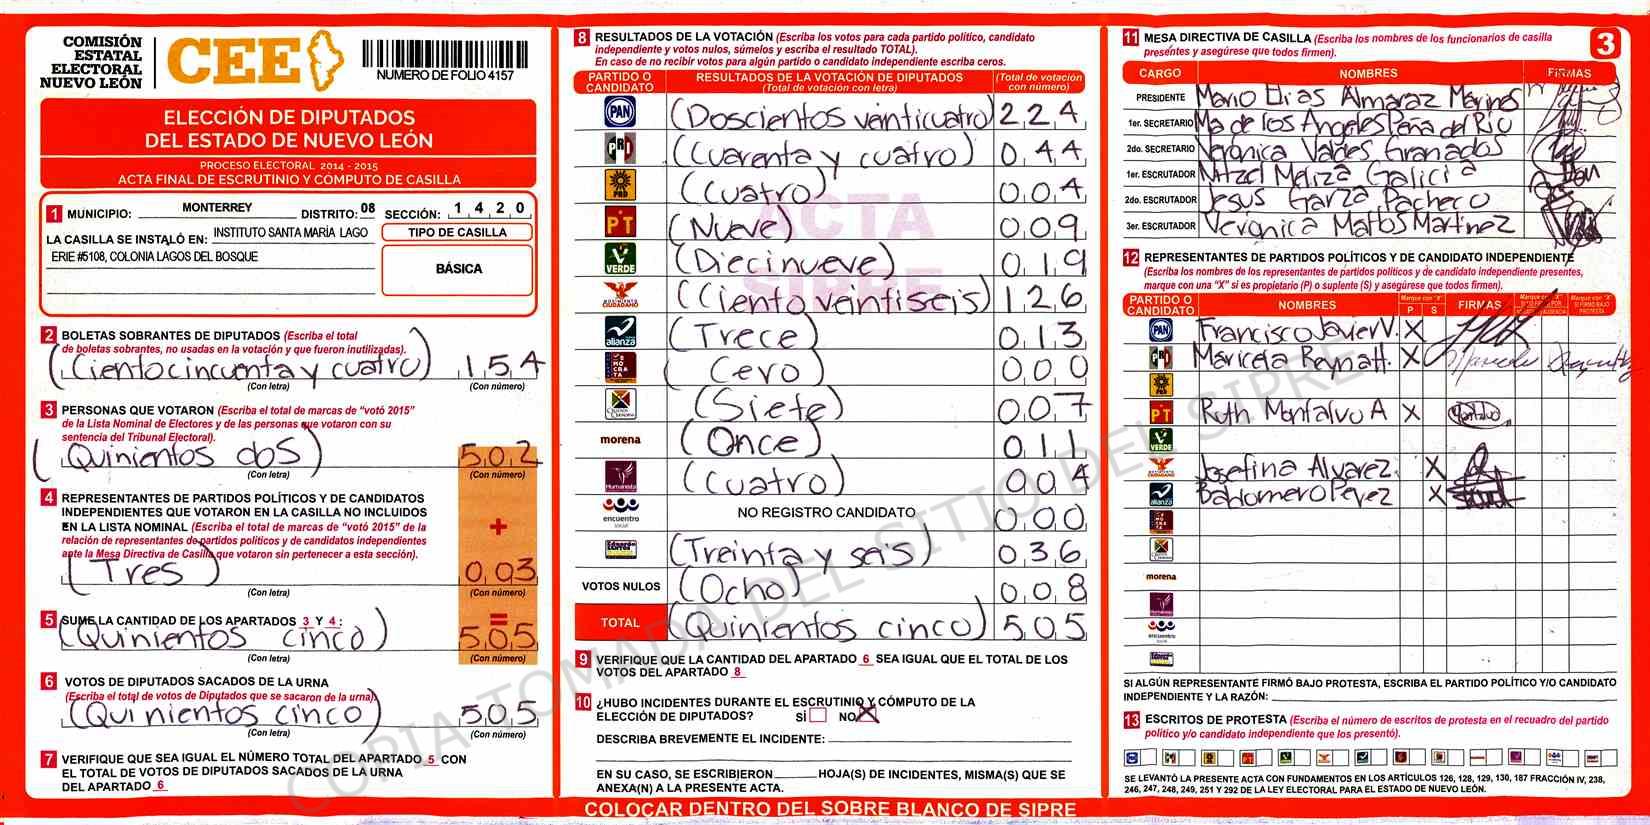 COMISIÓN
ESTATAL
ELECTORAL
NUEVO LEÓN
CEE
NUMERO DE FOLIO 4157
ELECCIÓN DE DIPUTADOS
DEL ESTADO DE NUEVO LEÓN
PROCESO ELECTORAL 2014 - 2015
ACTA FINAL DE ESCRUTINIO Y CÓMPUTO DE CASILLA
1 MUNICIPIO: MONTERREY DISTRITO: 08 SECCIÓN: 1 4 2 0
LA CASILLA SE INSTALÓ EN: INSTITUTO SANTA MARÍA LAGO
ERIE #5108, COLONIA LAGOS DEL BOSQUE
TIPO DE CASILLA
BÁSICA
2 BOLETAS SOBRANTES DE DIPUTADOS (Escriba el total
de boletas sobrantes, no usadas en la votación y que fueron inutilizadas).
(Ciento cincuenta y cuatro) 154
(Con letra) (Con número)
3 PERSONAS QUE VOTARON (Escriba el total de marcas de "votó 2015"
de la Lista Nominal de Electores y de las personas que votaron con su
sentencia del Tribunal Electoral).
(Quinientos dos) 502
(Con letra) (Con número)
4 REPRESENTANTES DE PARTIDOS POLÍTICOS Y DE CANDIDATOS
INDEPENDIENTES QUE VOTARON EN LA CASILLA NO INCLUIDOS
EN LA LISTA NOMINAL (Escriba el total de marcas de "votó 2015" de la
relación de representantes de partidos políticos y de candidatos independientes
ante la Mesa Directiva de Casilla que votaron sin pertenecer a esta sección).
+
(Tres) 003
(Con letra) (Con número)
=
5 SUME LA CANTIDAD DE LOS APARTADOS 3 Y 4 :
(Quinientos cinco) 505
(Con letra) (Con número)
6 VOTOS DE DIPUTADOS SACADOS DE LA URNA
(Escriba el total de votos de Diputados que se sacaron de la urna).
(Quinientos cinco) 505
(Con letra) (Con número)
7 VERIFIQUE QUE SEA IGUAL EL NÚMERO TOTAL DEL APARTADO 5 CON
EL TOTAL DE VOTOS DE DIPUTADOS SACADOS DE LA URNA
DEL APARTADO 6
8 RESULTADOS DE LA VOTACIÓN (Escriba los votos para cada partido político, candidato
independiente y votos nulos, súmelos y escriba el resultado TOTAL).
En caso de no recibir votos para algún partido o candidato independiente escriba ceros.
PARTIDO O CANDIDATO RESULTADOS DE LA VOTACIÓN DE DIPUTADOS (Total de votación con letra) (Total de votación con número)
PAN (Doscientos veinticuatro) 224
PRD (Cuarenta y cuatro) 044
PRD (Cuatro) 004
PT (Nueve) 009
VERDE (Diecinueve) 019
MOVIMIENTO CIUDADANO (Ciento veintiseis) 126
alianza (Trece) 013
DEMÓCRATA (Cero) 000
CRUZADA CIUDADANA (Siete) 007
morena (Once) 011
Humanista (Cuatro) 004
encuentro social NO REGISTRO CANDIDATO 000
(Treinta y seis) 036
VOTOS NULOS (Ocho) 008
TOTAL (Quinientos cinco) 505
ACTA
SIPRE
9 VERIFIQUE QUE LA CANTIDAD DEL APARTADO 6 SEA IGUAL QUE EL TOTAL DE LOS
VOTOS DEL APARTADO 8
10 ¿HUBO INCIDENTES DURANTE EL ESCRUTINIO Y CÓMPUTO DE LA
ELECCIÓN DE DIPUTADOS? SÍ NO X
DESCRIBA BREVEMENTE EL INCIDENTE:
EN SU CASO, SE ESCRIBIERON HOJA(S) DE INCIDENTES, MISMA(S) QUE SE
ANEXA(N) A LA PRESENTE ACTA.
COLOCAR DENTRO DEL SOBRE BLANCO DE SIPRE
11 MESA DIRECTIVA DE CASILLA (Escriba los nombres de los funcionarios de casilla
presentes y asegúrese que todos firmen).
3
CARGO NOMBRES FIRMAS
PRESIDENTE Mario Elias Almaraz Marines
1er. SECRETARIO Ma de los Angeles Peña del Rio
2do. SECRETARIO Veronica Valdes Granados
1er. ESCRUTADOR Nitzel Meliza Galicia
2do. ESCRUTADOR Jesus Garza Pacheco
3er. ESCRUTADOR Veronica Matos Martinez
12 REPRESENTANTES DE PARTIDOS POLÍTICOS Y DE CANDIDATO INDEPENDIENTE
(Escriba los nombres de los representantes de partidos políticos y de candidato independiente presentes,
marque con una "X" si es propietario (P) o suplente (S) y asegúrese que todos firmen).
PARTIDO O CANDIDATO NOMBRES Marque con "X" P S FIRMAS
PAN Francisco Javier V. X
PRD Maricela Reyna H. X
PRD
PT Ruth Montalvo A X
VERDE
Josefina Alvarez X
alianza Baldomero Perez X
morena
Humanista
encuentro social
SI ALGÚN REPRESENTANTE FIRMÓ BAJO PROTESTA, ESCRIBA EL PARTIDO POLÍTICO Y/O CANDIDATO
INDEPENDIENTE Y LA RAZÓN:
13 ESCRITOS DE PROTESTA (Escriba el número de escritos de protesta en el recuadro del partido
político y/o candidato independiente que los presentó).
SE LEVANTÓ LA PRESENTE ACTA CON FUNDAMENTOS EN LOS ARTÍCULOS 126, 128, 129, 130, 187 FRACCIÓN IV, 238,
246, 247, 248, 249, 251 Y 292 DE LA LEY ELECTORAL PARA EL ESTADO DE NUEVO LEÓN.
COPIA TOMADA DEL SITIO DEL SIPRE